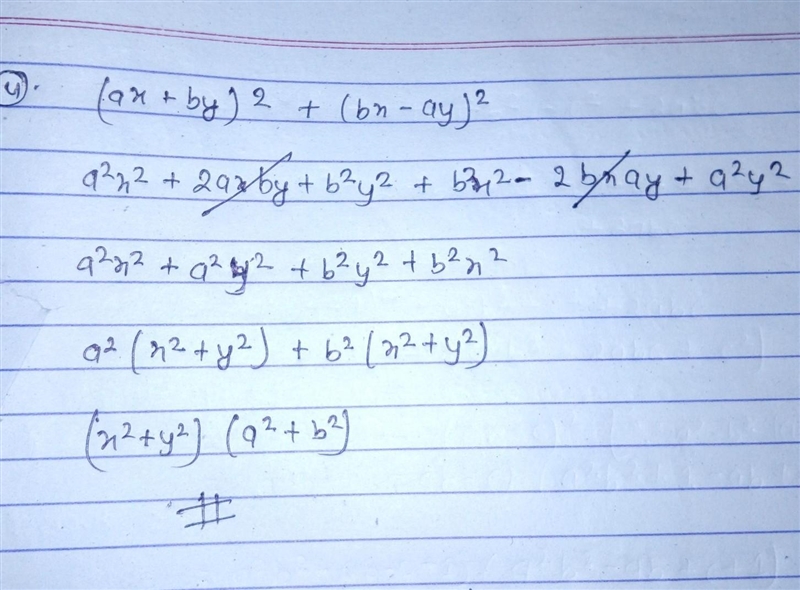 4). (ax + by)2 + (bx - ay)²
a²x² + 2axby + b²y² + b²x² - 2bxay + a²y²
a²x² + a²y² + b²y² + b²x²
a² (x² + y²) + b² (x² + y²)
(x² + y²) (a² + b²)